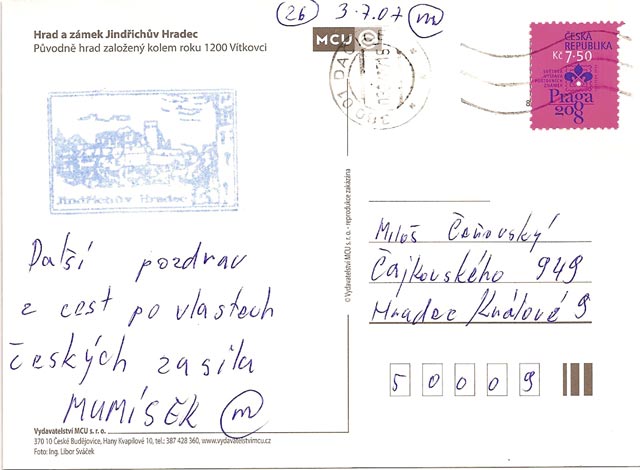 (26) 3.7.07 m
Hrad a zámek Jindřichův Hradec
Původně hrad založený kolem roku 1200 Vítkovci
MCU
ČESKÁ
REPUBLIKA
Kč 7·50
SVĚTOVÁ
VÝSTAVA
POŠTOVNÍCH
ZNÁMEK
Praga
2008
Jindřichův Hradec
© Vydavatelství MCU s. r. o. - reprodukce zakázána
Další pozdrav
z cest po vlastech
českých zasílá
MUMÍSEK m
Miloš
Čajkovského 949
Hradec Králové 9
5 0 0 0 9
Vydavatelství MCU s. r. o.
370 10 České Budějovice, Hany Kvapilové 10, tel.: 387 428 360, www.vydavatelstvimcu.cz
Foto: Ing. Libor Sváček